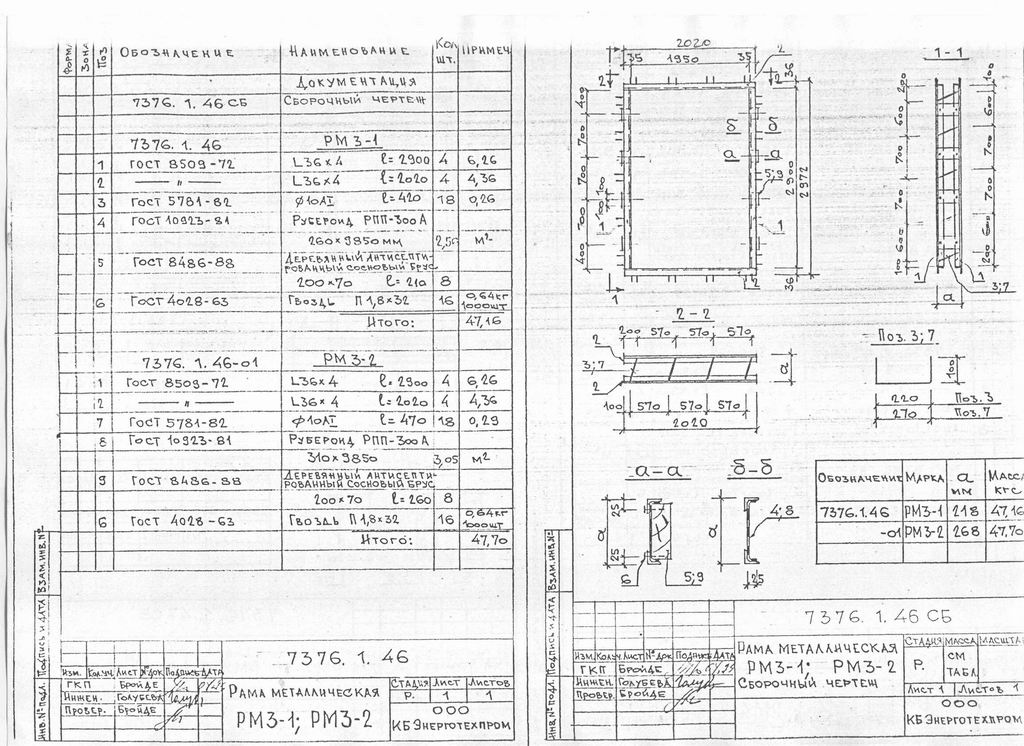 Форм. Зона Поз. Обозначение Наименование Кол шт. Примеч
Документация
7376. 1. 46 СБ Сборочный чертеж
7376. 1. 46 РМ3-1
1 ГОСТ 8509-72 L36×4 ℓ=2900 4 6,26
2 —— " —— L36×4 ℓ=2020 4 4,36
3 ГОСТ 5781-82 ⌀10АI ℓ=420 18 0,26
4 ГОСТ 10923-81 Рубероид РПП-300А
260×9850мм м²
5 ГОСТ 8486-88 Деревянный антисепти-
рованный сосновый брус
200×70 ℓ=210 8
6 ГОСТ 4028-63 Гвоздь П 1,8×32 16 0,64кг
1000шт
Итого: 47,16
7376. 1. 46-01 РМ3-2
1 ГОСТ 8509-72 L36×4 ℓ=2900 4 6,26
2 —— " —— L36×4 ℓ=2020 4 4,36
7 ГОСТ 5781-82 ⌀10АI ℓ=470 18 0,29
8 ГОСТ 10923-81 Рубероид РПП-300А
310×9850 3,05 м²
9 ГОСТ 8486-88 Деревянный антисепти-
рованный сосновый брус
200×70 ℓ=260 8
6 ГОСТ 4028-63 Гвоздь П 1,8×32 16 0,64кг
1000шт
Итого: 47,70
Инв.№ подл. Подпись и дата Взам.инв.№
7376. 1. 46
Изм. Колуч Лист №док Подпись Дата
ГКП Бройде
Инжен. Голубева
Провер. Бройде
Рама металлическая
РМ3-1; РМ3-2
Стадия Лист Листов
Р. 1 1
ООО
КБ Энерготехпром
2020
35 1950 35
2 2
2 2
36
400
700
700
100 100
400
б б
а а
5;9
1
2900
2972
36
1 1
1-1
200 100
600 600
700 700
700 700
600 600
100 200
1 1
3;7
а
2-2
200 570 570 570
2
3;7
2
а
100 570 570 570
2020
Поз. 3; 7
100
220 Поз.3
270 Поз.7
а-а
25
а
25
6 5;9
б-б
а
4;8
25
Обозначение Марка а мм Масса кгс
7376.1.46 РМ3-1 218 47,16
-01 РМ3-2 268 47,70
Инв.№ подл. Подпись и дата Взам.инв.№
7376. 1. 46 СБ
Изм. Колуч Лист №док Подпись Дата
ГКП Бройде
Инжен. Голубева
Провер. Бройде
Рама металлическая
РМ3-1; РМ3-2
Сборочный чертеж
Стадия Масса Масшта
Р. см. табл.
Лист 1 Листов 1
ООО
КБ Энерготехпром